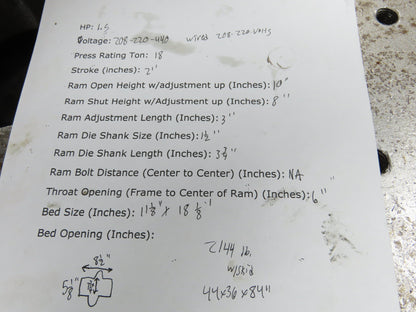 HP: 1.5
Voltage: 208-220-440 wired 208-220 volts
Press Rating Ton: 18
Stroke (inches): 2"
Ram Open Height w/adjustment up (Inches): 10"
Ram Shut Height w/Adjustment up (Inches): 8"
Ram Adjustment Length (Inches): 3"
Ram Die Shank Size (Inches): 1½"
Ram Die Shank Length (Inches):
Ram Bolt Distance (Center to Center) (Inches): NA
Throat Opening (Frame to Center of Ram) (Inches): 6"
Bed Size (Inches): 11⅛" x 18⅛"
Bed Opening (Inches):
2144 lb.
w/skid
44x36x84"
8½"
5⅛"